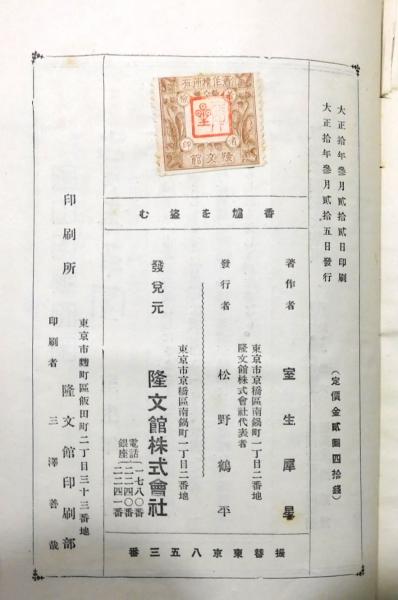 大正拾年參月貳拾貳日印刷
大正拾年參月貳拾五日發行
(定價金貳圓四拾錢)
香爐を盜む
著作者 室生犀星
東京市京橋區南鍋町一丁目二番地
隆文館株式會社代表者
發行者 松野鶴平
東京市京橋區南鍋町一丁目二番地
發兌元 隆文館株式會社
電話
銀座
一一七八〇番
二二四〇番
二二四一番
振替東京八五三番
東京市麴町區飯田町二丁目三十三番地
印刷所 隆文館印刷部
印刷者 三澤善哉
隆文館